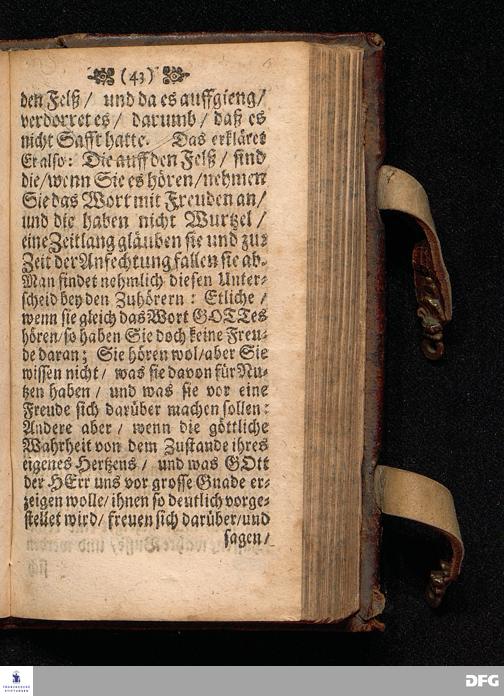 (43)
den Felß/ und da es auffgieng/
verdorret es/ darumb/ daß es
nicht Safft hatte. Das erkläret
Er also: Die auff den Felß/ sind
die/ wenn Sie es hören/ nehmen
Sie das Wort mit Freuden an/
und die haben nicht Wurtzel/
eine Zeitlang gläuben sie und zur
Zeit der Anfechtung fallen sie ab.
Man findet nehmlich diesen Unter-
scheid bey den Zuhörern: Etliche/
wenn sie gleich das Wort GOTTes
hören/ so haben Sie doch keine Freu-
de daran; Sie hören wol/ aber Sie
wissen nicht/ was sie davon für Nu-
tzen haben/ und was sie vor eine
Freude sich darüber machen sollen:
Andere aber/ wenn die göttliche
Wahrheit von dem Zustande ihres
eigenes Hertzens/ und was GOtt
der HErr uns vor grosse Gnade er-
zeigen wolle/ ihnen so deutlich vorge-
stellet wird/ freuen sich darüber/ und
sagen/
FRANCKESCHE
STIFTUNGEN
DFG